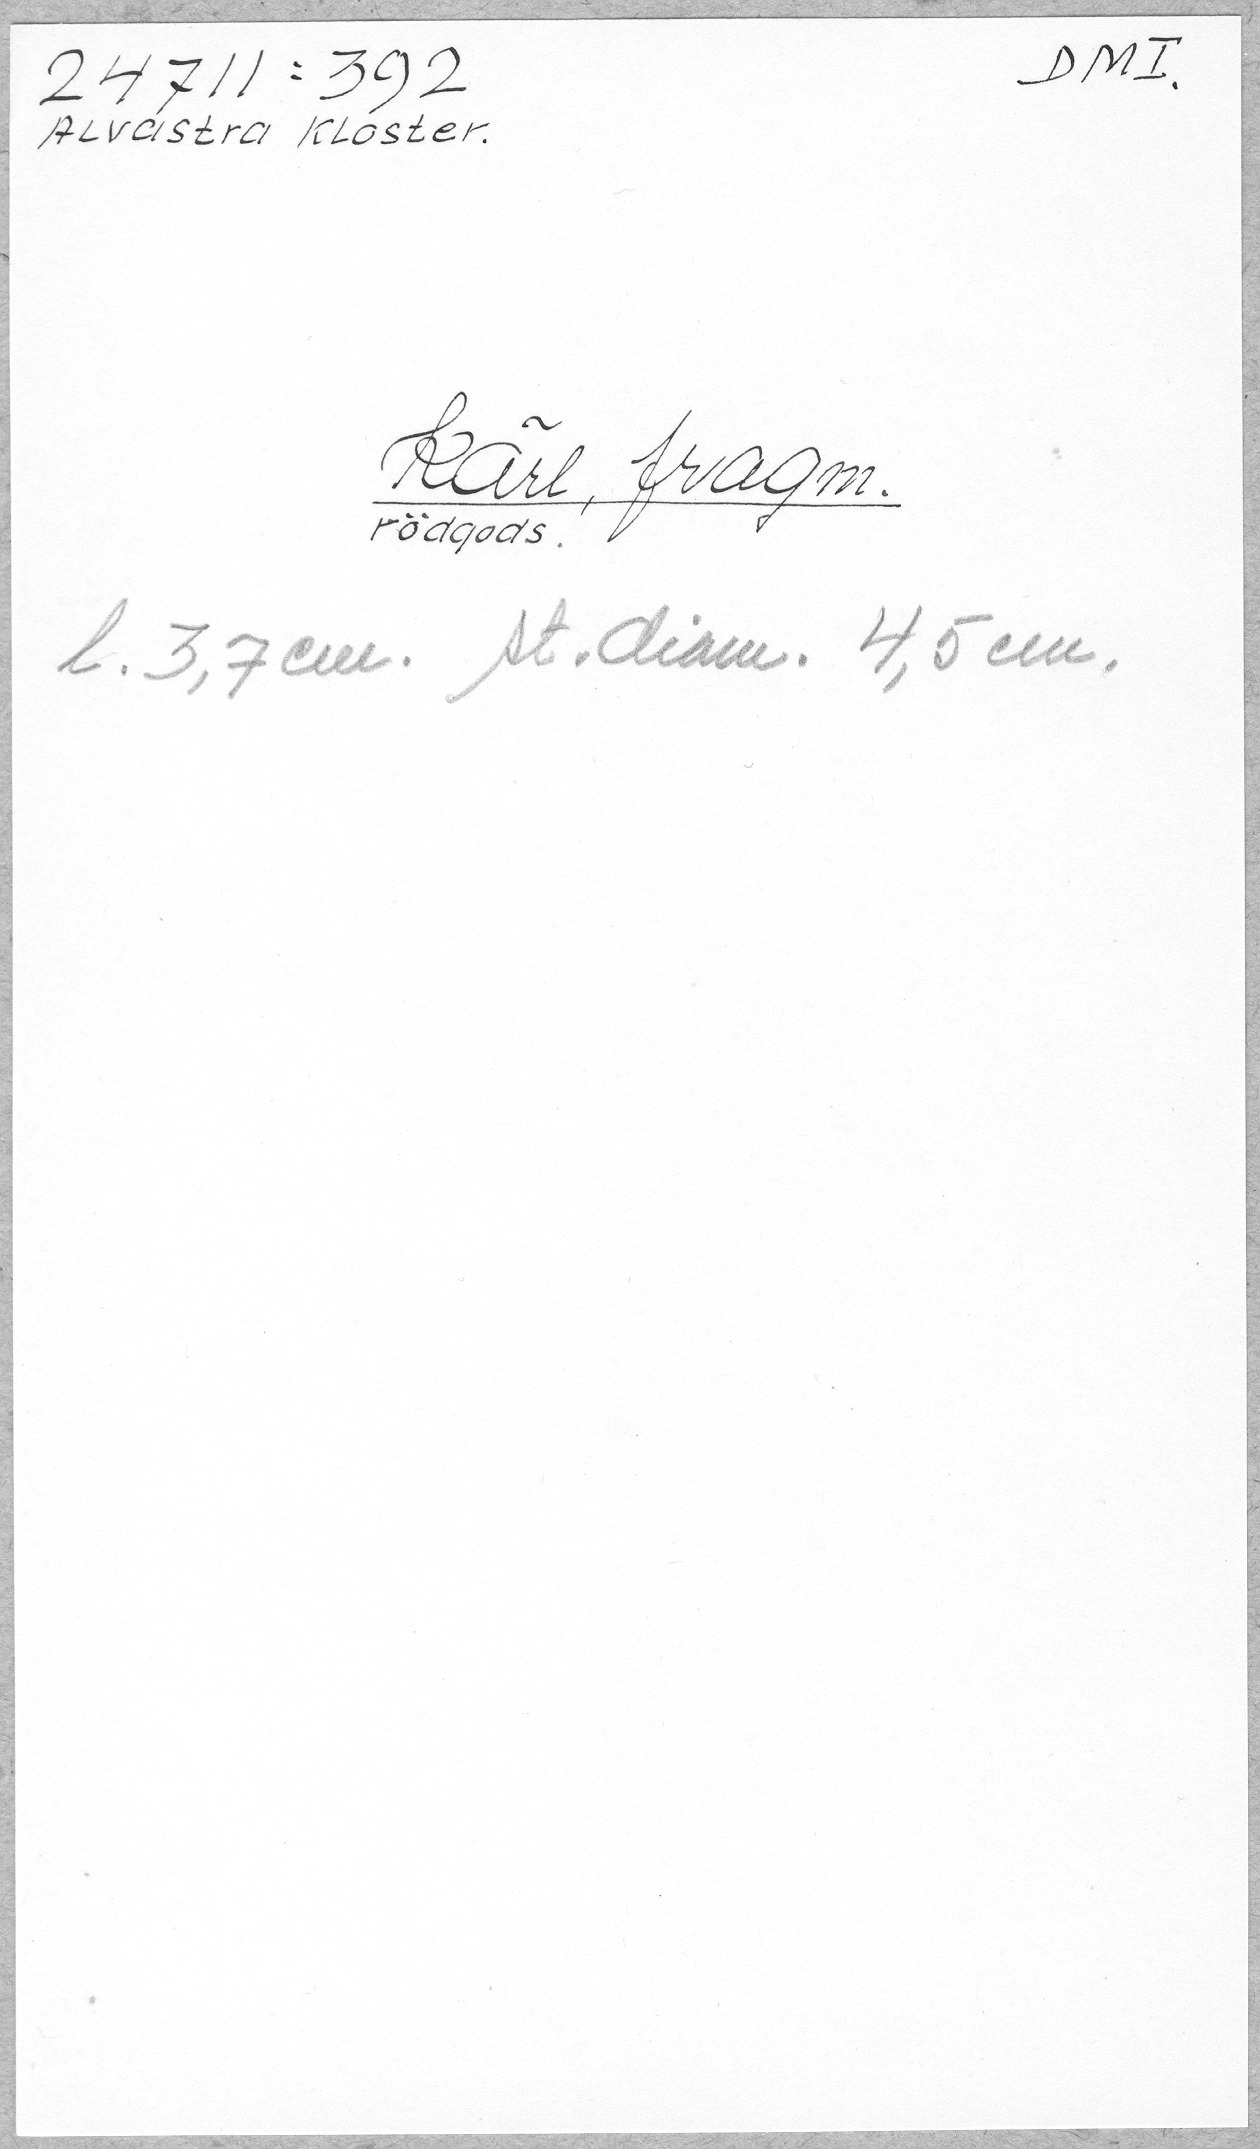 24711:392
Alvastra Kloster.
DMI.
Kärl, fragm.
rödgods.
l. 3,7 cm. st. diam. 4,5 cm.